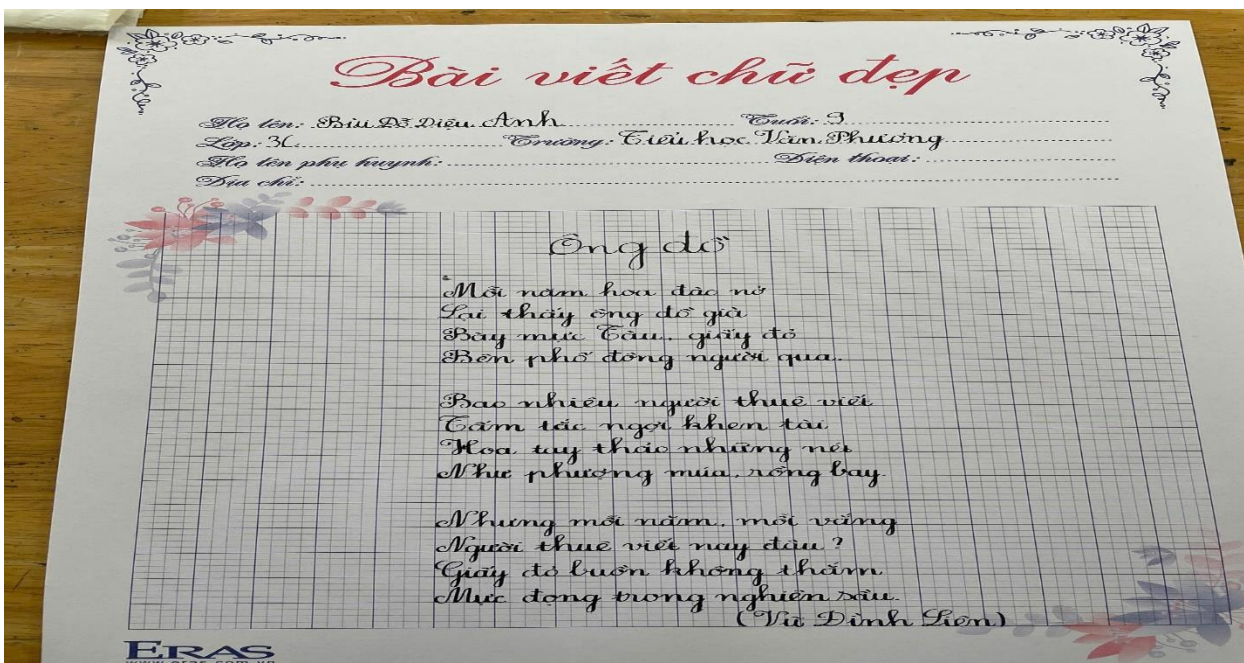 Bài viết chữ đẹp
Họ tên: Bùi Đỗ Diệu Anh Tuổi: 9
Lớp: 3C Trường: Tiểu học Vân Phương
Họ tên phụ huynh: Điện thoại:
Địa chỉ:
Ông đồ
Mỗi năm hoa đào nở
Lại thấy ông đồ già
Bày mực Tàu, giấy đỏ
Bên phố đông người qua.
Bao nhiêu người thuê viết
Tấm tắc ngợi khen tài
Hoa tay thảo những nét
Như phượng múa, rồng bay.
Nhưng mỗi năm, mỗi vắng
Người thuê viết nay đâu?
Giấy đỏ buồn không thắm
Mực đọng trong nghiên sầu.
(Vũ Đình Liên)
ERAS
www.eras.com.vn